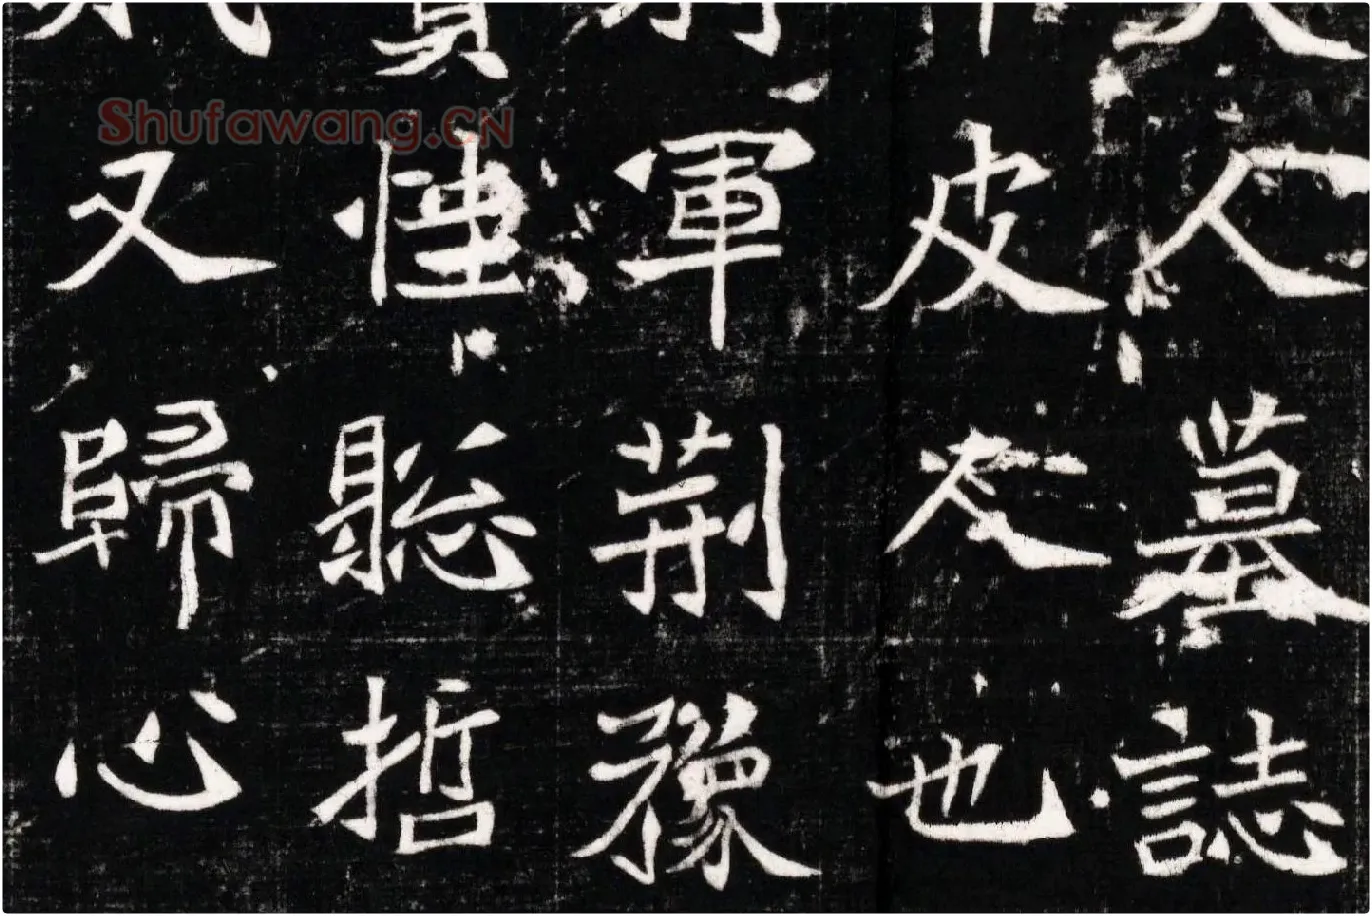 人墓誌
皮也
軍荊豫
聡哲
又歸心
Shufawang.CN